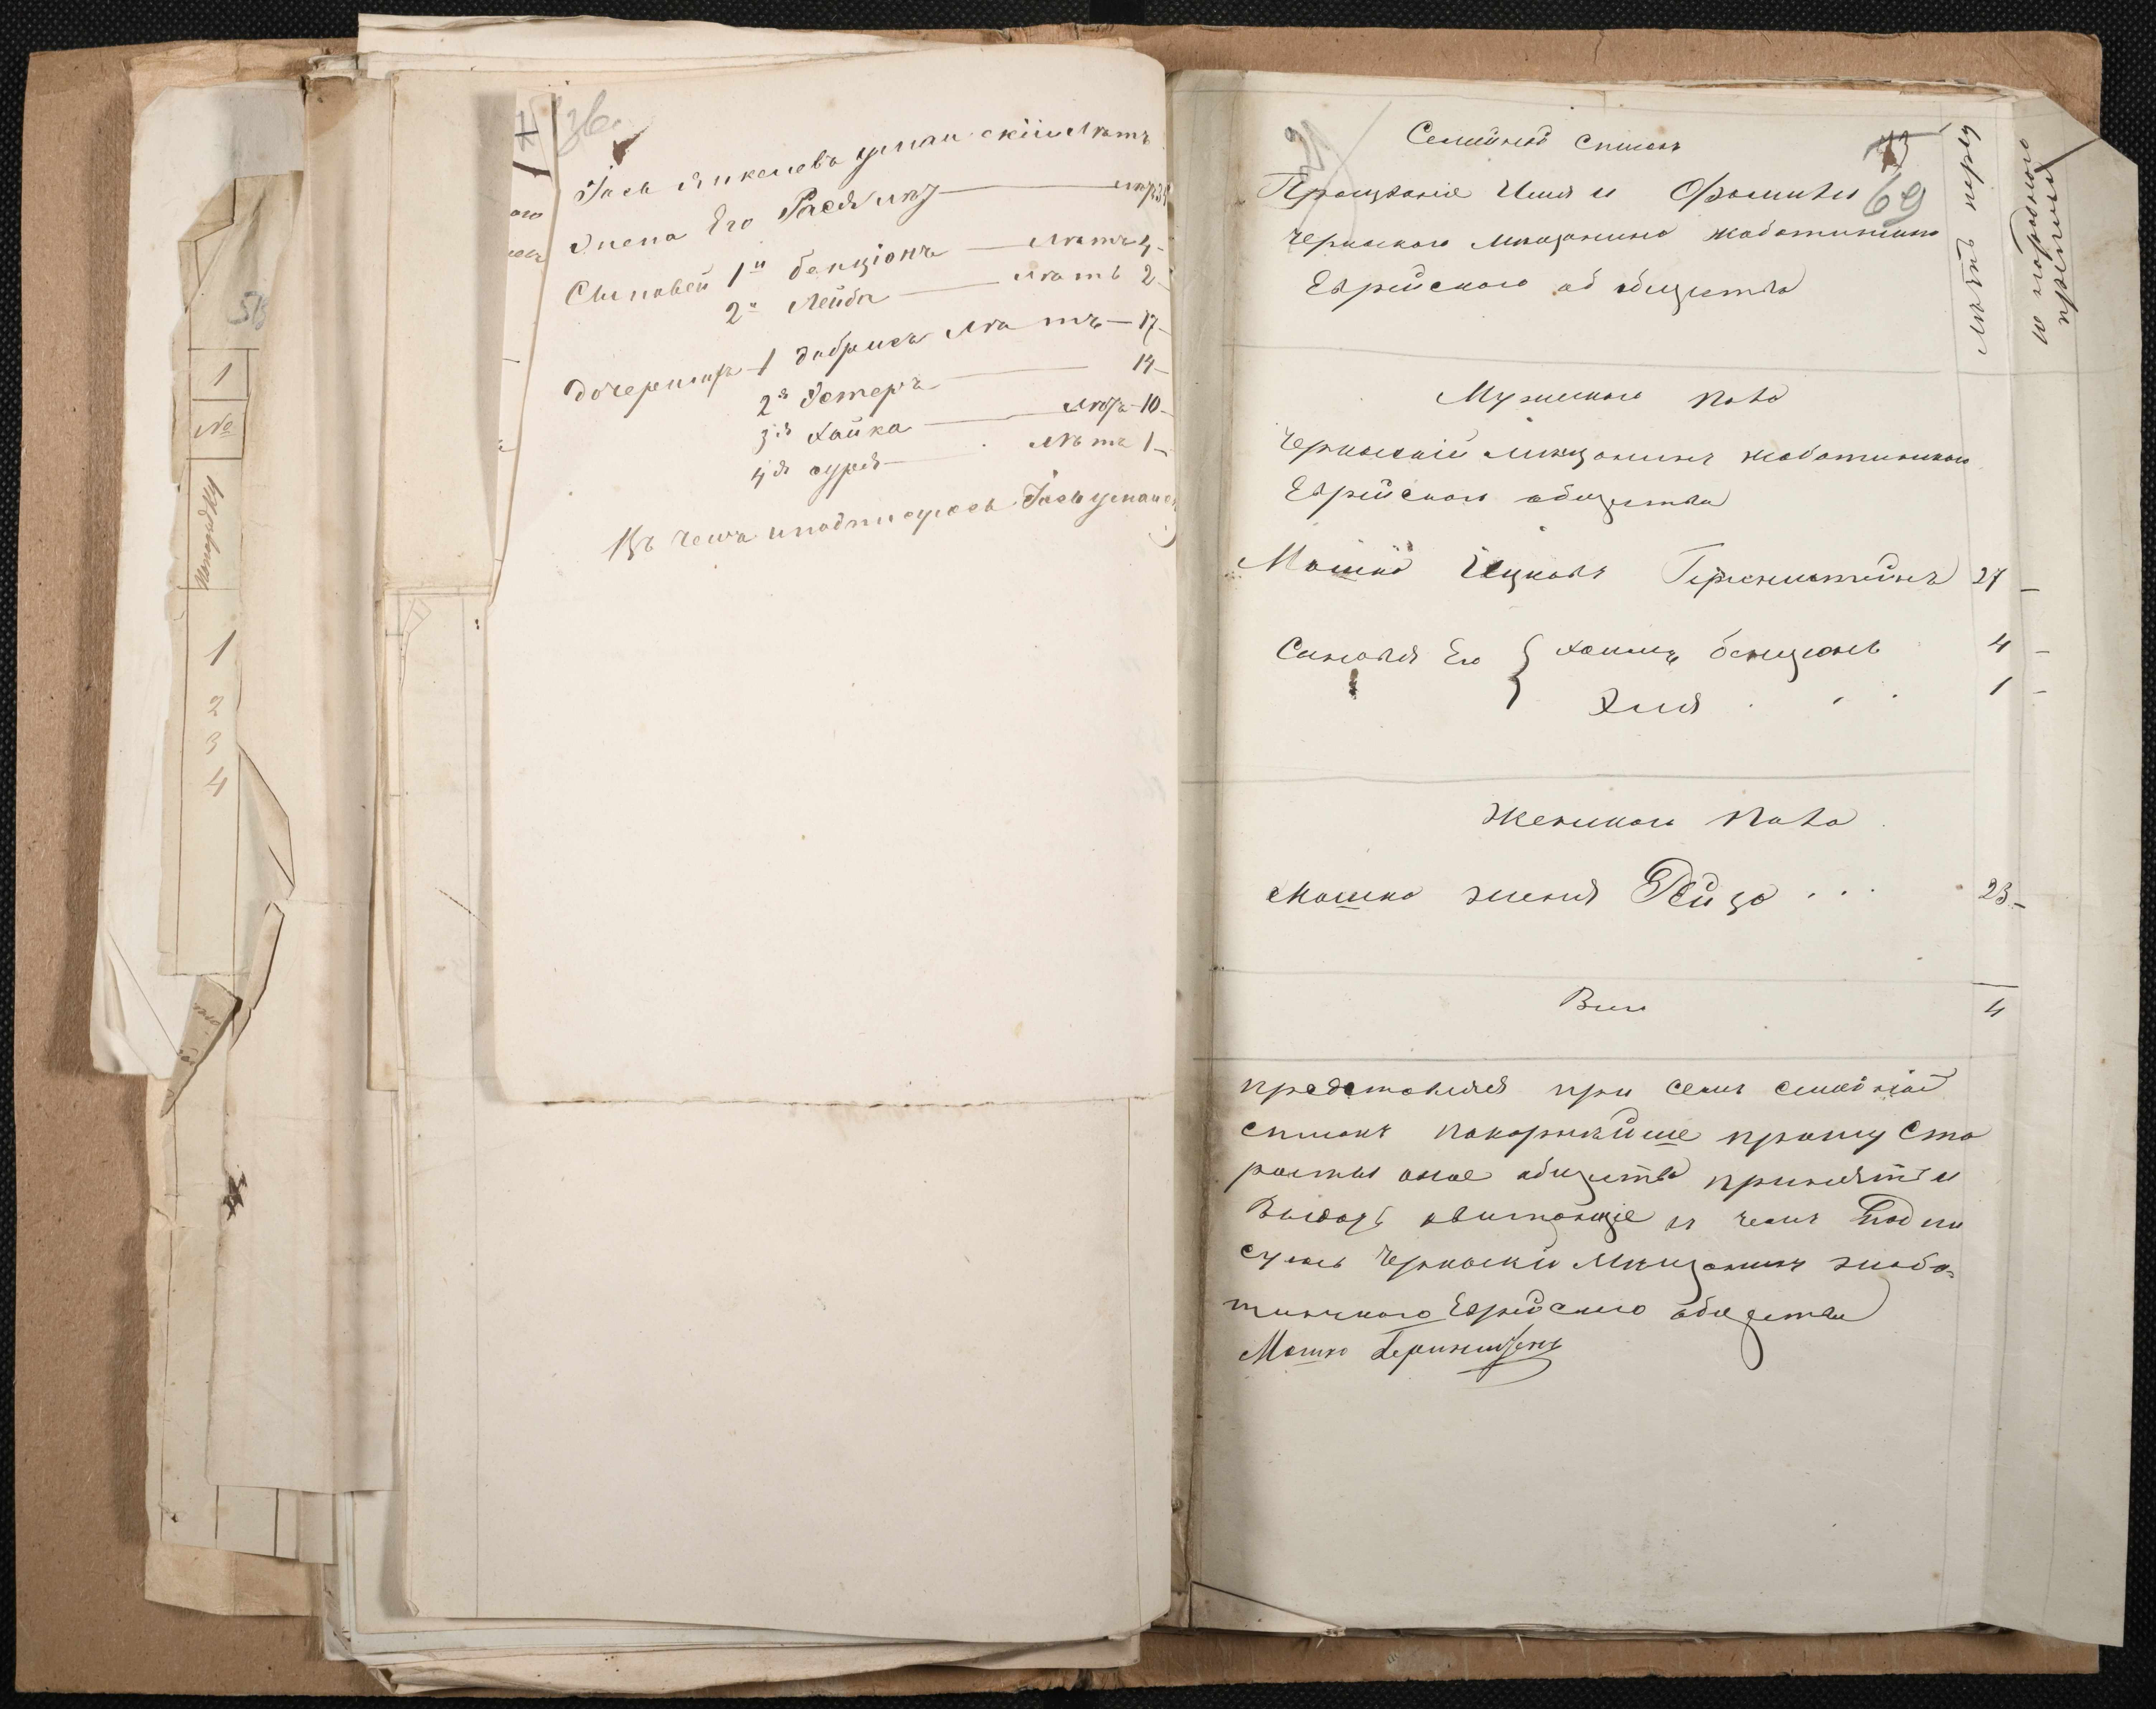 36.
Іось Янкелевъ уманскій летъ
Жена Его Рася летъ 39
Сыновей 1й бенціонъ летъ 4
2й Лейба летъ 2
дочерищъ 1 добрись летъ 17
2я Эстеръ 14
3я Хайка летъ 10
4я сура летъ 1
Въ чемъ и подписуюсь Іось уманск
58
1
№
1
2
3
4
Семейной Списокъ 69
Прозваніе Имя и Фамилія
черкаского мещанина жаботинского
Еврейского об общества
летъ
Мужеского пола
Черкаскій мещанинъ жаботинского
Еврейского общества
Мошко Іцковъ Гершенштейнъ 27
Синовя Его Хаимъ бенціонъ 4
Эля 1
Женского пола
Мошко женя Рейза 23
Всего 4
представляя при семъ семейной
списокъ покорнейше прошу Ста
росты оное общества принять и
Выдать квитанціе въ чемъ Подпи
суюсь Черкаскій Мещанинъ жабо-
тинского Еврейского общества
Мошко